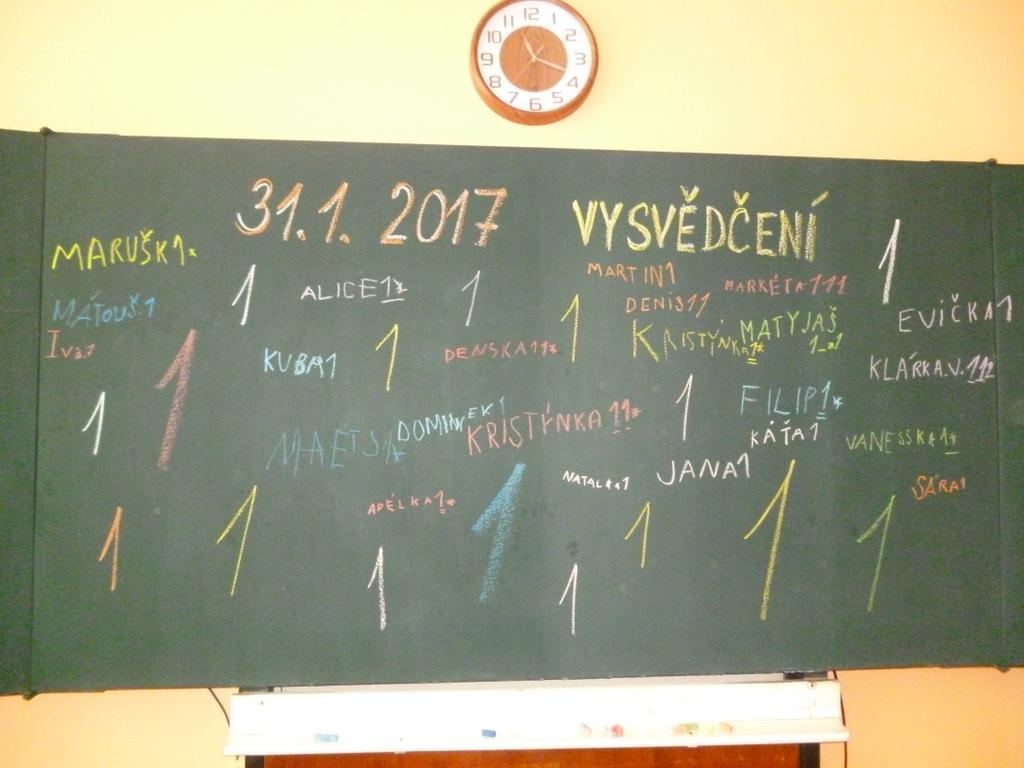 12
11 1
10 2
9 3
8 4
7 6 5
31.1. 2017 VYSVĚDČENÍ
MARUŠK1*
MÁTOUŠ1
Iva1
1
ALICE1*
1
MARTIN1
MARKÉTA111
1
DENIS11
EVIČKA1
1
KRISTÝNKA1*
MATYJAŠ
1_a1
1
KUBA1
1
DENSKA11*
KLÁRKA.V.111
1
1
FILIP1*
DOMINEK1
KRISTÝNKA 11*
KÁŤA1
VANESSKA1*
NATALKA1
JANA1
SÁRA1
ADÉLKA1*
1
1
1
1
1
1
1
1